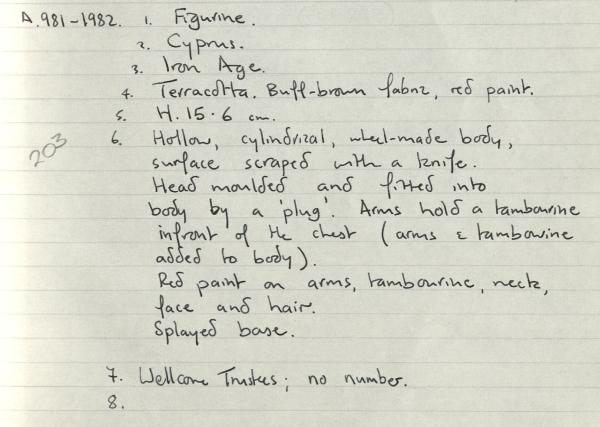 A.981-1982. 1. Figurine.
2. Cyprus.
3. Iron Age.
4. Terracotta. Buff-brown fabric, red paint.
5. H. 15.6 cm.
203
6. Hollow, cylindrical, wheel-made body,
surface scraped with a knife.
Head moulded and fitted into
body by a 'plug'. Arms hold a tambourine
infront of the chest (arms & tambourine
added to body).
Red paint on arms, tambourine, neck,
face and hair.
Splayed base.
7. Wellcome Trustees; no number.
8.